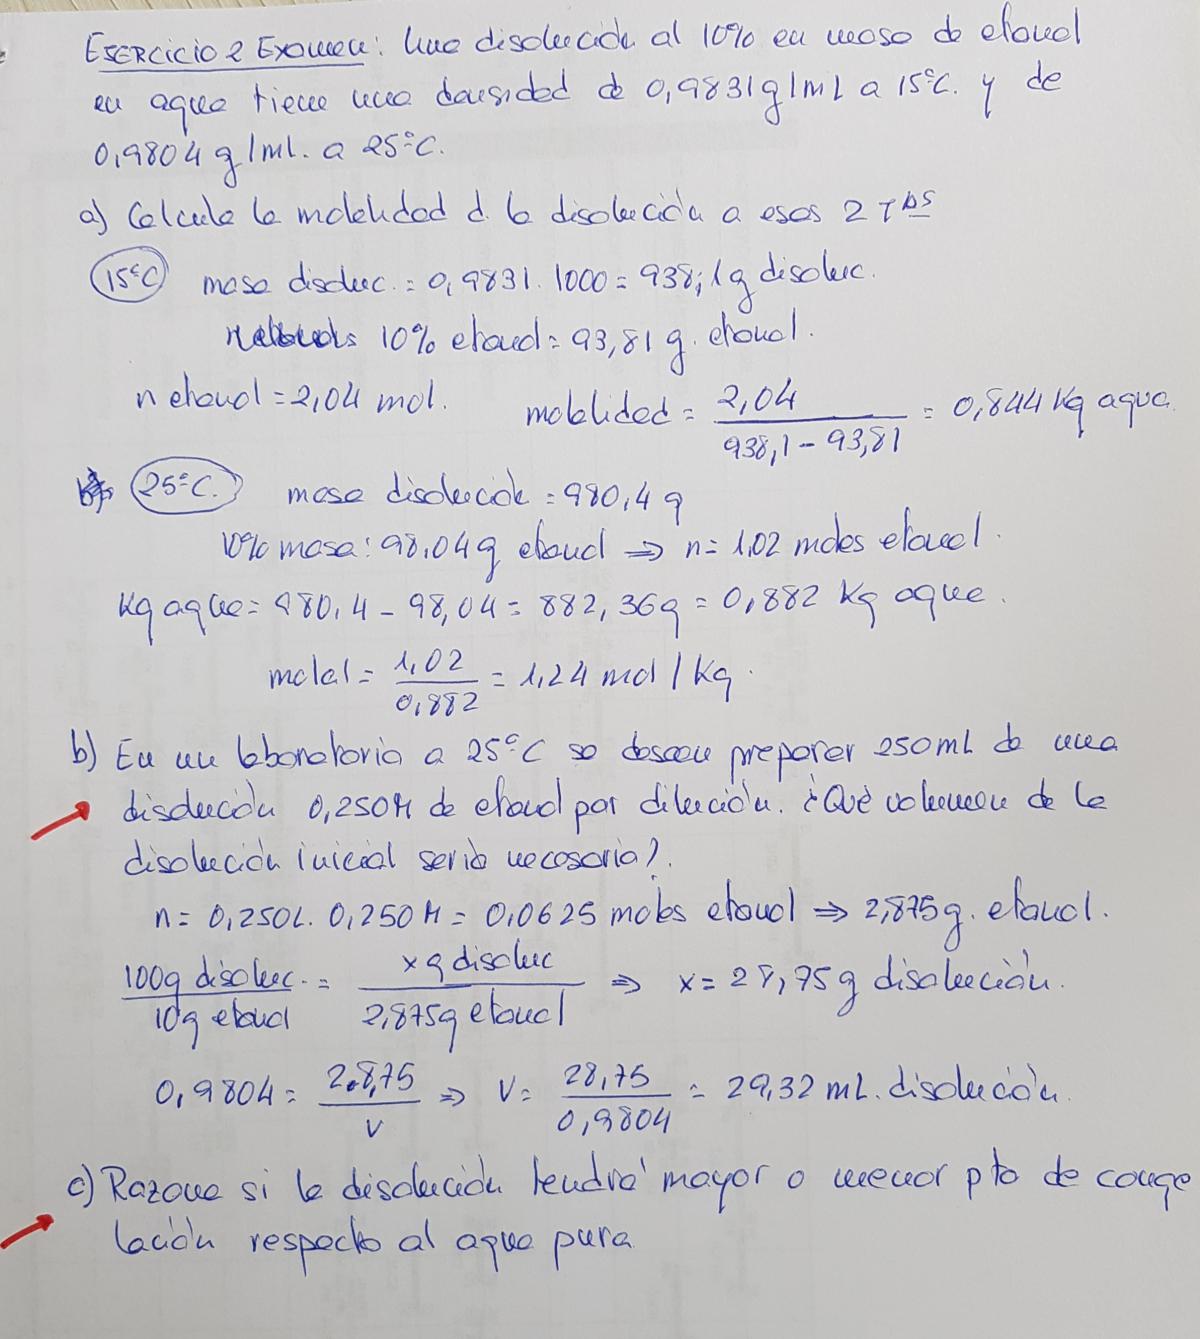 Ejercicio 2 Examen: Una disolución al 10% en masa de etanol
en agua tiene una densidad de 0,9831 g/mL a 15°C. y de
0,9804 g/ml. a 25°C.
a) Calcula la molalidad d. la disolución a esas 2 Tas
15°C masa disoluc. = 0,9831 . 1000 = 938,1g disoluc.
10% etanol = 93,81 g. etanol.
n etanol = 2,04 mol. molalidad = 2,04 / 938,1 - 93,81 = 0,844 Kg agua
25°C. masa disolución = 980,4 g
10% masa: 98,04 g etanol => n = 1,02 moles etanol.
Kg agua = 980,4 - 98,04 = 882,36g = 0,882 Kg agua.
molal = 1,02 / 0,882 = 1,24 mol / Kg.
b) En un laboratorio a 25°C se desean preparar 250mL de una
disolución 0,250M de etanol por dilución. ¿Qué volumen de la
disolución inicial sería necesaria?.
n = 0,250L. 0,250M = 0,0625 moles etanol => 2,875g. etanol.
100g disoluc. / 10g etanol = x g disoluc / 2,875g etanol => x = 28,75g disolución.
0,9804 = 28,75 / V => V = 28,75 / 0,9804 = 29,32 mL. disolución.
c) Razona si la disolución tendrá mayor o menor pto de conge
lación respecto al agua pura